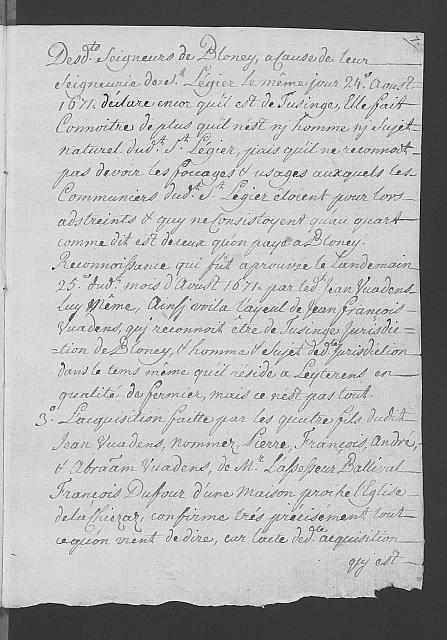 7.
Desd.ts Seigneurs de Bloney, a Cause de leur
Seigneurie de S.t Légier le même jour 24.e Aoust
1671. declare incor qu'il est de Tusinge, Elle fait
Connoitre de plus qu'il n'est nj homme nj Sujet
naturel dud.t S.t Légier, puis qu'il ne reconnoit
pas devoir les fouages & usages auxquels les
Communiers dud.t S.t Légier étoient pour lors
adstreints & quy ne Consistoyent qu'au quart
comme dit est de ceux qu'on paye a Bloney.
Reconnoissance qui fut aprouvée le Landemain
25.e dud.t mois d'Aoust 1671. par led.t Jean Vuadens
luy Même, Ainsj voila l'ayeul de Jean François
Vuadens, quj reconnoit etre de Tusinge Jurisdic=
=tion de Bloney, & homme & Sujet de d.te Jurisdiction
dans le tems même qu'il réside a Leyterens en
qualité de fermier, mais ce n'est pas tout.
3.o L'acquisition faitte par les quatre fils dudit
Jean Vuadens, nommez Pierre, François, André,
& Abraäm Vuadens, de M.r L'assesseur Balival
François Duffour d'une Maison proche l'Eglise
de la Chiezaz, confirme trés précisément tout
ce qu'on vient de dire, car l'acte de d.te acquisition
quj est